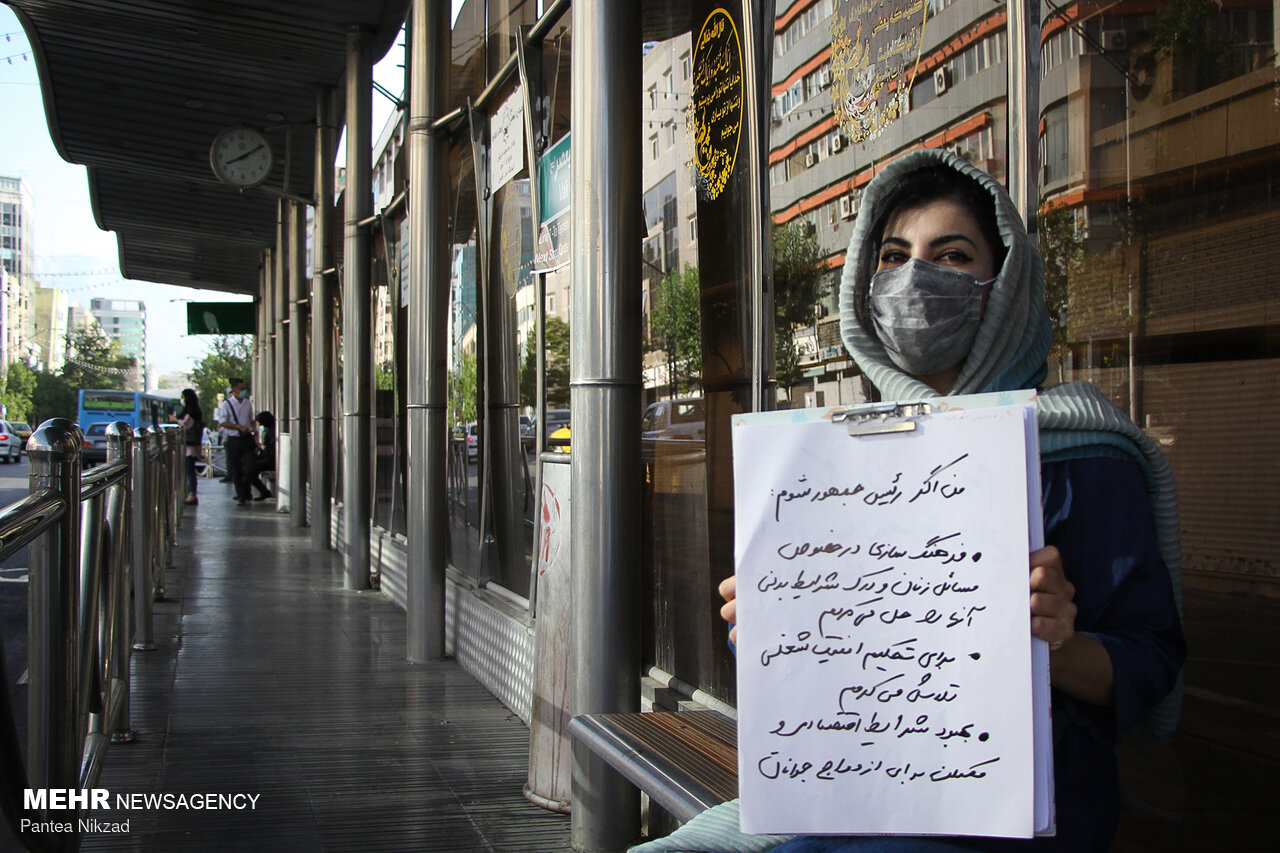 من اگر رئیس جمهور شوم:
• فرهنگ سازی در خصوص
مسائل زنان و درک شرایط بدنی
آنها را حل می کردم
• برای تحکیم امنیت شغلی
تلاش می کردم
• بهبود شرایط اقتصادی و
مسکن برای ازدواج جوانان
MEHR NEWSAGENCY
Pantea Nikzad